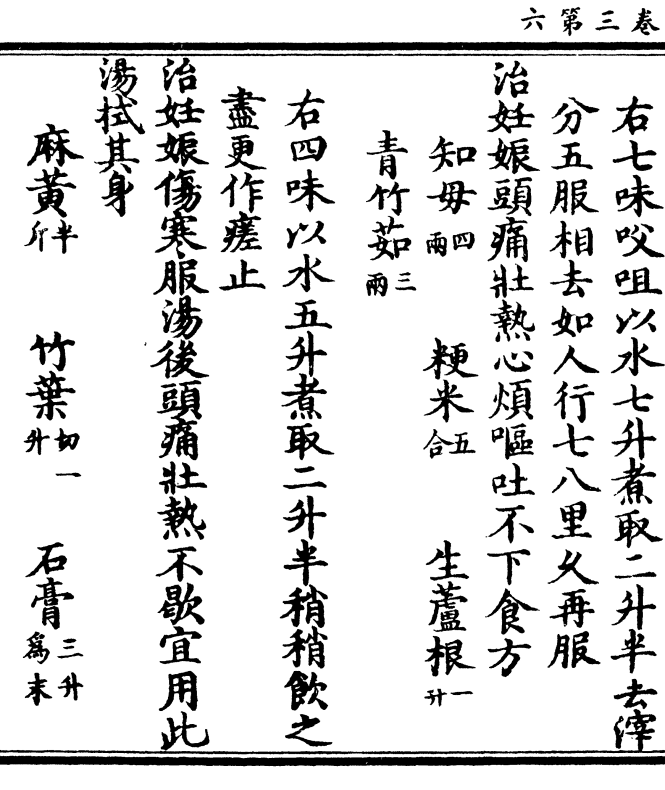 卷三第六
右七味㕮咀以水七升煮取二升半去滓
分五服相去如人行七八里久再服
治妊娠頭痛壯熱心煩嘔吐不下食方
知母四兩 粳米五合 生蘆根一升
青竹茹三兩
右四味以水五升煮取二升半稍稍飲之
盡更作瘥止
治妊娠傷寒服湯後頭痛壯熱不歇宜用此
湯拭其身
麻黃半斤 竹葉切一升 石膏三升為末